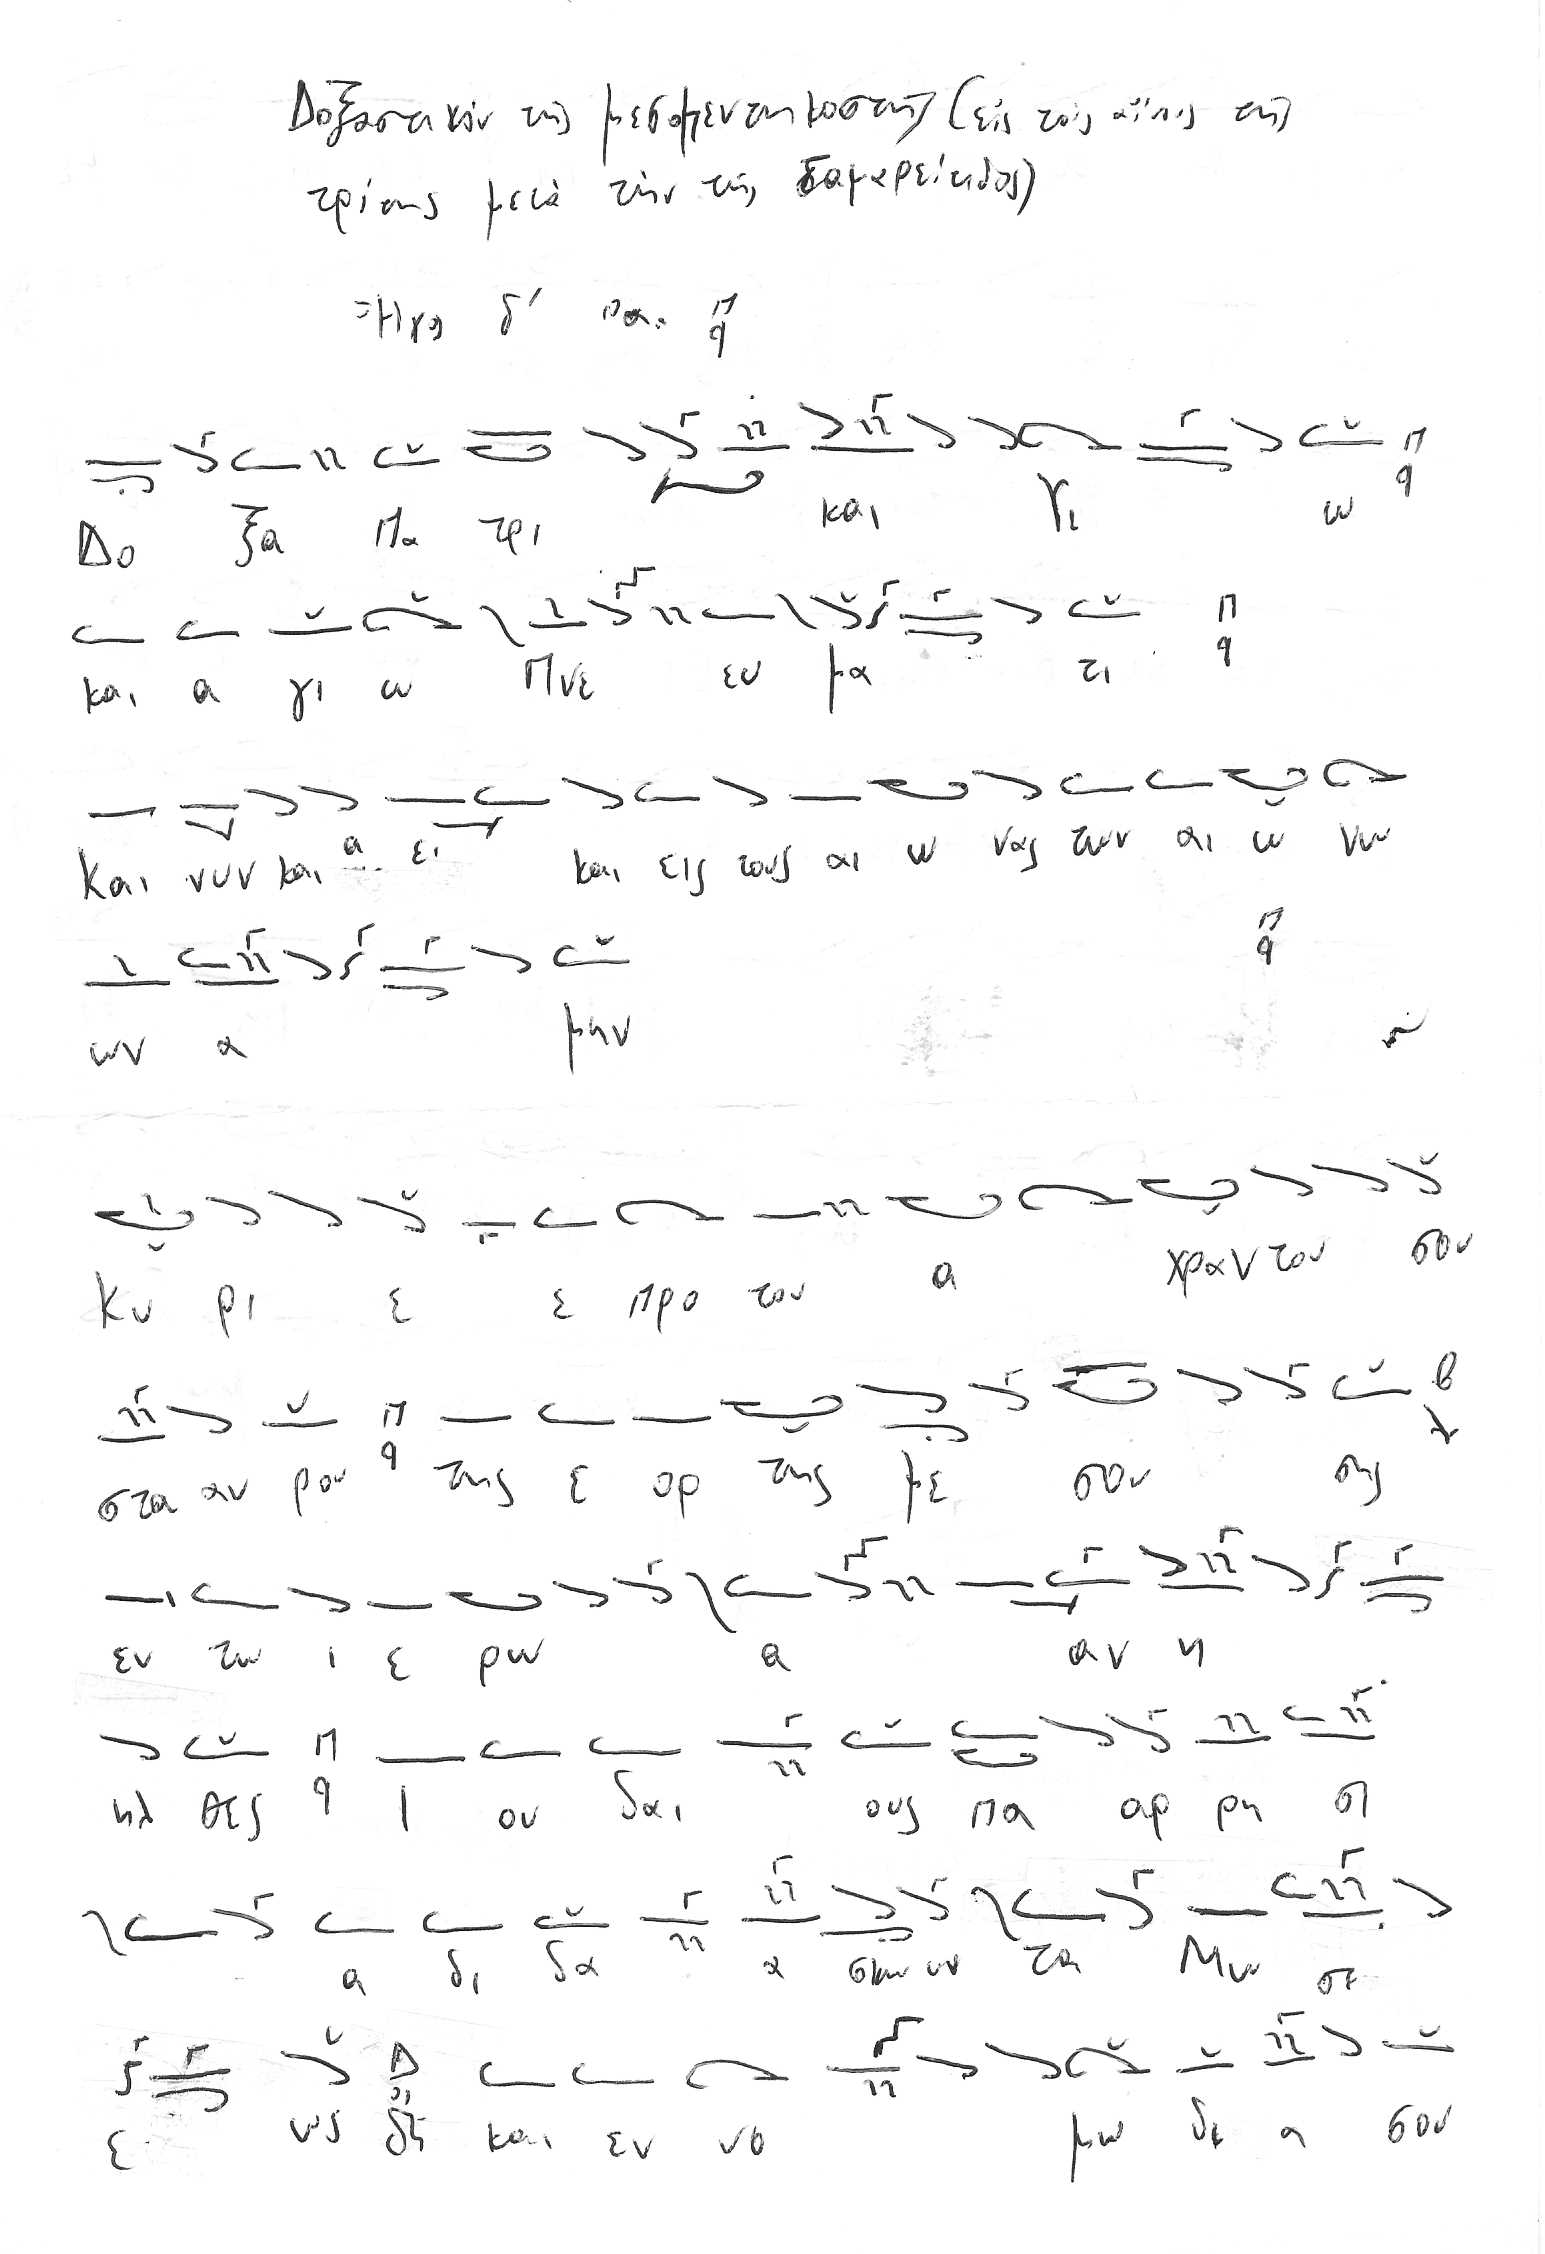 Δοξαστικόν της μεσοπεντηκοστής (εἰς τοὺς αἴνους της
τρίτης μετὰ τὴν τῆς Σαμαρείτιδος)
Ἦχος δ' Πα.
Δο ξα Πα τρι και Υι ω
και α γι ω Πνε ευ μα τι
Και νυν και α ει και εις τους αι ω νας των αι ω νω
ων α μην
Κυ ρι ε ε προ του α χραν του σου
στα αυ ρου της ε ορ της με σου σης
εν τω ι ε ρω α αν η
ηλ θες Ι ου δαι ους πα αρ ρη σι
α δι δα α σκων ων τα Μω σε
ε ως δη και εν νο μω δε α σου